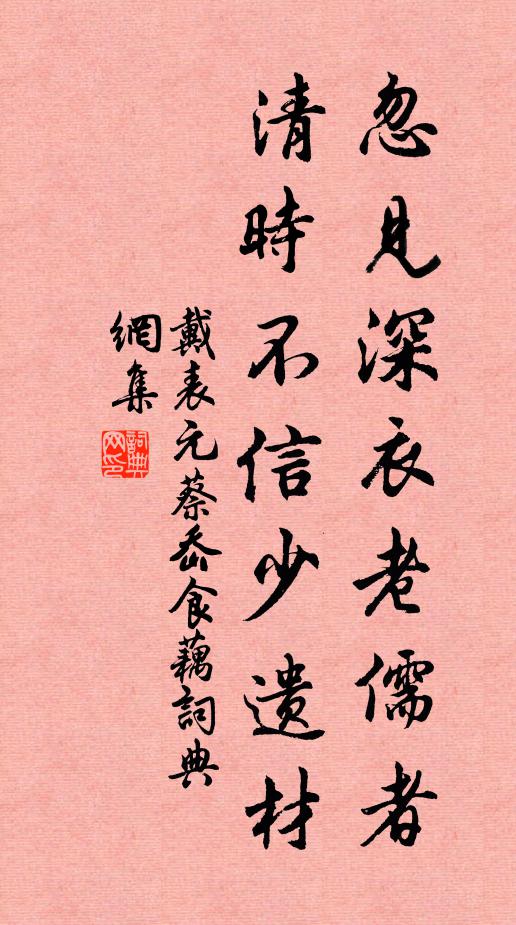 忽見深衣老儒者
清時不信少遺材
戴表元蔡岙食藕詞典
網集
詞典
网印